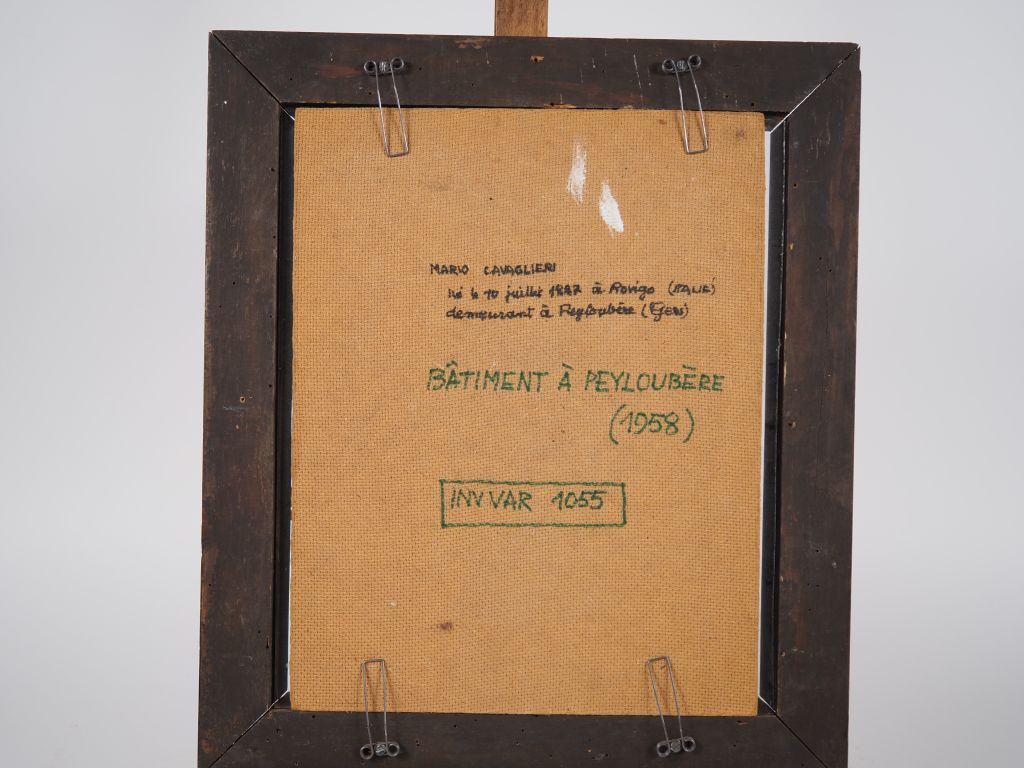 MARIO CAVAGLIERI
né le 10 juillet 1887 à Rovigo (ITALIE)
demeurant à Peyloubère (Gers)
BÂTIMENT À PEYLOUBÈRE
(1958)
INV VAR 1055